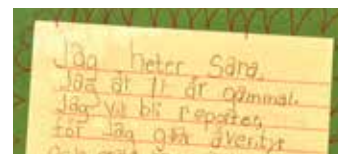 Jag heter Sara.
Jag är 11 år gammal.
Jag vill bli reporter,
för Jag äventyr